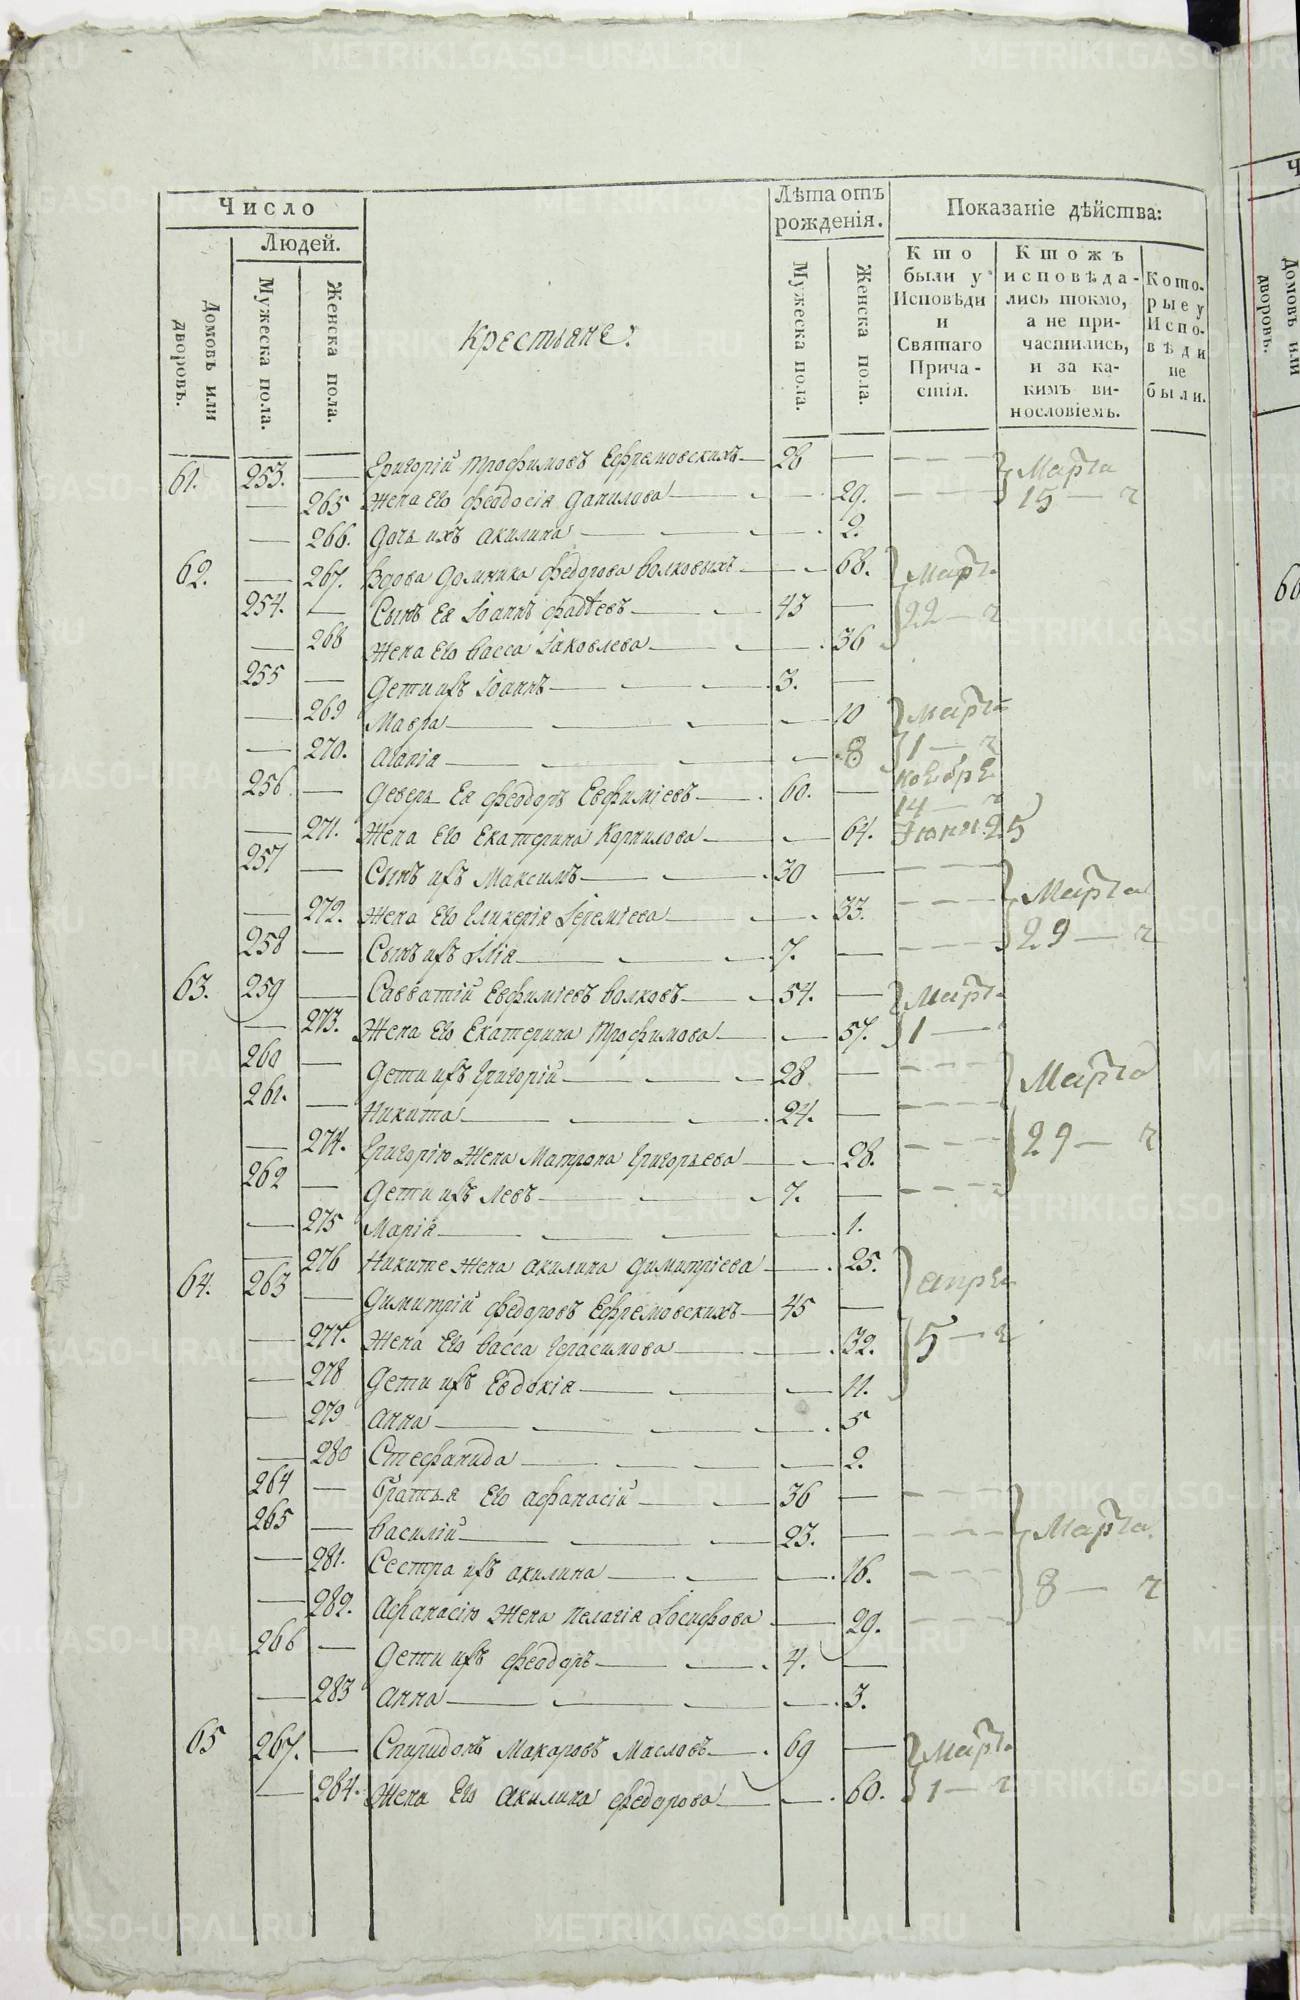 Число
Людей.
Домовъ или дворовъ.
Мужеска пола.
Женска пола.
Лѣта отъ рожденія.
Мужеска пола.
Женска пола.
Показаніе дѣйства:
Кто были у Исповѣди и Святаго Причастія.
Ктожъ исповѣдались токмо, а не причастились, и за какимъ винословіемъ.
Которые у Исповѣди не были.
Крестьяне:
61. 253. — Григорій Трофимовъ Ефремовскихъ — 28 — Марта
— 265 Жена Его Феодосія Данилова — 29. 15 — ч
— 266. Дочь ихъ Акилина — 2.
62. — 267. Вдова Домника Федорова Волковыхъ — 68. Март
254. — Сынъ Ея Іоаннъ Фадѣевъ — 43 — 22 — ч
— 268 Жена Его Васса Іаковлева — 36
255 — Дети ихъ Іоаннъ — 3. —
— 269 Мавра — 10 Март
— 270. Агапія — 8 1 — ч
256. — Деверь Ея Феодоръ Евфиміевъ — 60. — ноебре 14 — ч
— 271. Жена Его Екатерина Корнилова — 64. Іюня. 25
257 — Сынъ ихъ Максимъ — 30 —
— 272. Жена Его Гликерія Іереміева — 33. Марта
258 — Сынъ ихъ Илія — 7. — 29 — ч
63. 259 — Савватій Евфиміевъ Волковъ — 54. — Март
— 273. Жена Его Екатерина Трофимова — 57. 1 —
260 — Дети ихъ Григорій — 28 — Марта
261. — Никита — 24. —
— 274. Григорію Жена Матрона Григорьева — 28. 29 — ч
262 — Дети ихъ Левъ — 7. —
— 275 Марія — 1.
— 276 Никите Жена Акилина Димитріева — 25. апре
64. 263 — Димитрій Федоровъ Ефремовскихъ — 45 —
— 277. Жена Его Васса Герасимова — 32. 5 — ч
— 278 Дети ихъ Евдокія — 11.
— 279 Анна — 5
— 280 Стефанида — 2.
264 — Братья Его Афанасій — 36 —
265 — Василій — 23. — Марта
— 281. Сестра ихъ Акилина — 16. 8 — ч
— 282. Афанасію Жена Пелагія Іосифова — 29.
266 — Дети ихъ Феодоръ — 4. —
— 283 Анна — 3.
65 267. — Спиридонъ Макаровъ Масловъ — 69 — Март
— 284. Жена Его Акилина Федорова — 60. 1 — ч
Домовъ или дворовъ.
METRIKI.GASO-URAL.RU